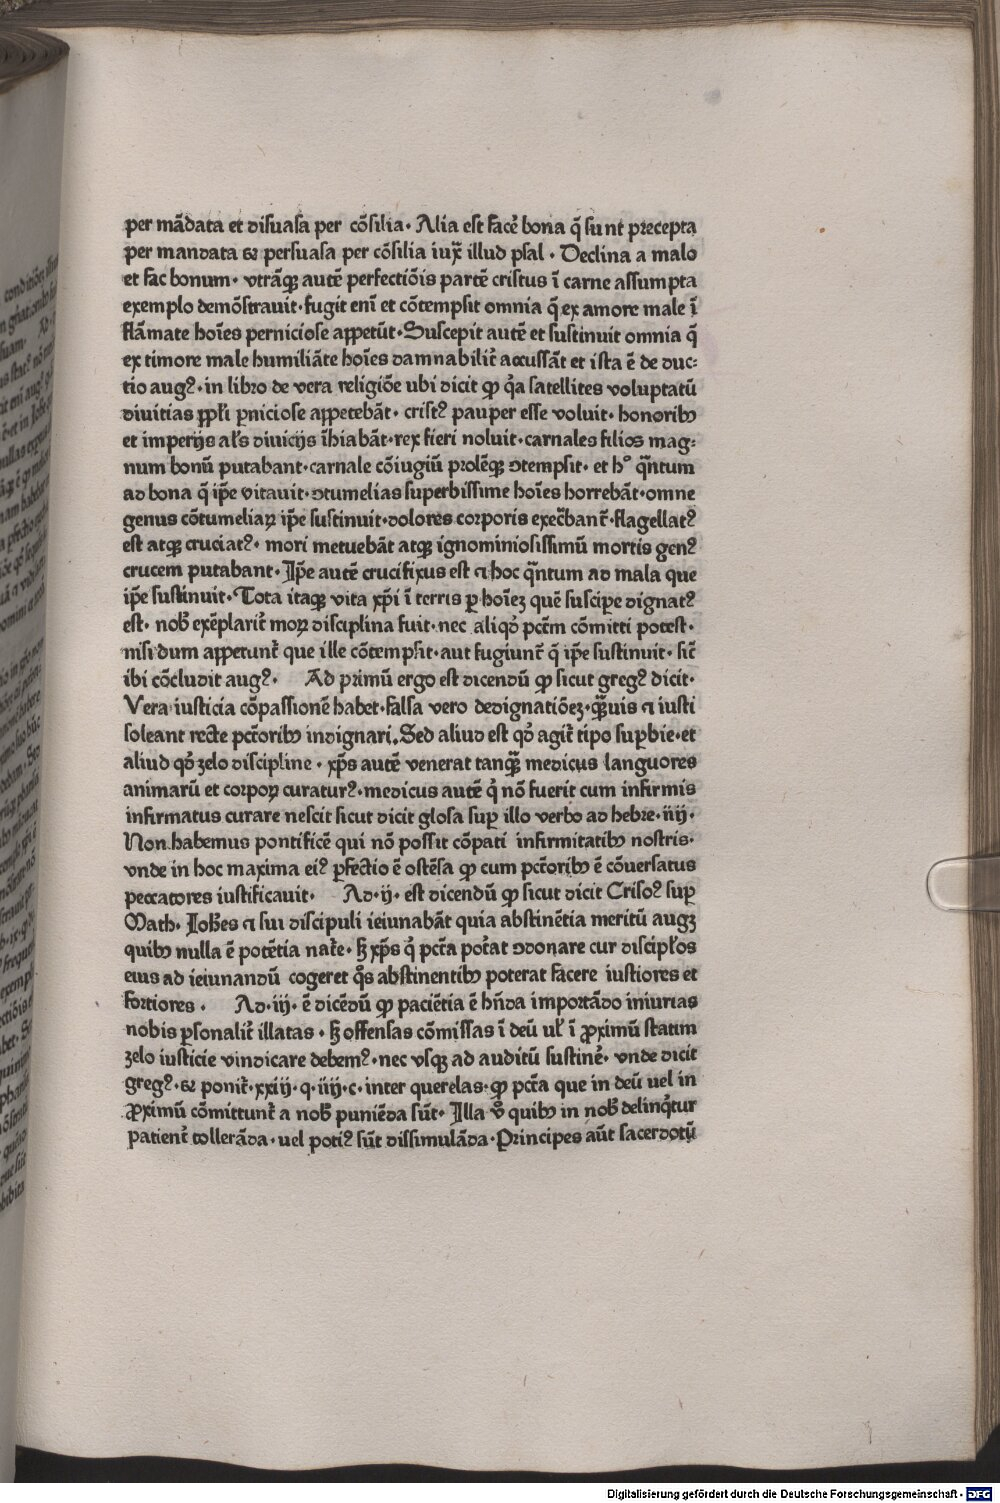 per mãdata et disuasa per cõsilia· Alia est facẽ bona q̃ sunt precepta
per mandata ⁊ persuasa per cõsilia iux̃ illud psal· Declina a malo
et fac bonum· vtrãqꝫ autẽ perfectiõis partẽ cristus ĩ carne assumpta
exemplo demõstrauit·fugit enĩ et cõtempsit omnia q̃ ex amore male ĩ
flãmate hoĩes perniciose appetũt·Suscepit autẽ et sustinuit omnia q̃
ex timore male humiliãte hoĩes damnabilit̃ accussãt et ista ẽ de duc:
tio augꝰ·in libro de vera religiõe ubi dicit ꝙ q̃a satellites voluptatũ
diuitias ꝓpl̃i ꝑniciose appetebãt· cristꝰ pauper esse voluit· honoribꝫ
et imperijs al̃s diuicijs ĩhiabãt·rex fieri noluit·carnales filios mag:
num bonũ putabant·carnale cõiugiũ prolẽqꝫ ꝯtempsit· et hº q̃ntum
ad bona q̃ ip̃e vitauit·ꝯtumelias superbissime hoĩes horrebãt·omne
genus cõtumeliaꝝ ip̃e sustinuit·dolores corporis exec̃bant̃·flagellatꝰ
est atqꝫ cruciatꝰ· mori metuebãt atqꝫ ignominiosissimũ mortis genꝰ
crucem putabant· Ip̃e autẽ crucifixus est ⁊ hoc q̃ntum ad mala que
ip̃e sustinuit·Tota itaqꝫ vita xp̃i ĩ terris ꝑ hoĩeꝫ quẽ suscipe dignatꝰ
est· nob̃ exẽplarit̃ moꝝ disciplina fuit·nec aliqd̾ pctm̃ cõmitti potest·
nisi dum appetunt̃ que ille cõtempsit·aut fugiunt̃ q̃ ip̃e sustinuit· sic̃
ibi cõcludit augꝰ· Ad primũ ergo est dicendũ ꝙ sicut gregꝰ dicit·
Vera iusticia cõpassionẽ habet·falsa vero dedignatiõeꝫ·q̃ꝫuis ⁊ iusti
soleant recte pct̃oribꝫ indignari.Sed aliud est qd̾ agit̃ tipo suꝑbie·et
aliud qd̾ zelo discipline· xp̃s autẽ venerat tanqꝫ̃ medicus languores
animarũ et corpoꝝ curaturꝰ·medicus autẽ q̾ nõ fuerit cum infirmis
infirmatus curare nescit sicut dicit glosa suꝑ illo verbo ad hebre·iiij·
Non habemus pontificẽ qui nõ possit cõpati infirmitatibꝫ nostris·
vnde in hoc maxima eiꝰ ꝑfectio ẽ ostẽsa ꝙ cum pct̃oribꝫ ẽ cõuersatus
peccatores iustificauit· Ad·ij· est dicendũ ꝙ sicut dicit Crisoꝰ suꝑ
Math· Joh̃es ⁊ sui discipuli ieiunabãt quia abstinẽtia meritũ augꝫ
quibꝫ nulla ẽ potẽtia nat̃e·ẜꝫ xp̃s q̾ pct̃a pot̃at ꝯdonare cur discip̃los
eius ad ieiunandũ cogeret q̾s abstinentibꝫ poterat facere iustiores et
fortiores· Ad·iij· ẽ dicẽdũ ꝙ paciẽtia ẽ hñda importãdo iniurias
nobis ꝑsonalit̃ illatas· ẜꝫ offensas cõmissas ĩ deũ ul̃ ĩ ꝓximũ statim
zelo iusticie vindicare debemꝰ·nec vsqꝫ ad auditũ sustinẽ· vnde dicit
gregꝰ·⁊ ponit̃·xxiij·q·iiij·c·inter querelas·ꝙ pct̃a que in deũ uel in
ꝓximũ cõmittunt̃ a nob̃ puniẽda sũt· Illa v̾o quibꝫ in nob̃ delinq̃tur
patient̃ tollerãda·uel potiꝰ sũt dissimulãda·Principes aũt sacerdotũ
Digitalisierung gefördert durch die Deutsche Forschungsgemeinschaft · DFG